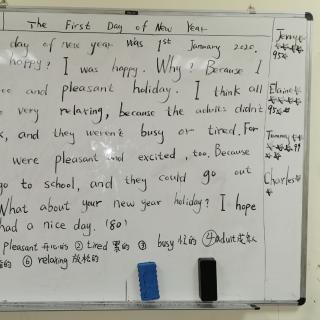 The First Day of New Year
day of new year was 1st January 2020.
happy? I was happy. Why? Because I
and pleasant holiday. I think all
very relaxing, because the adults didn't
and they weren't busy or tired. For
were pleasant and excited, too. Because
go to school, and they could go out
What about your new year holiday? I hope
had a nice day. (80)
pleasant 开心的 ② tired 累的 ③ busy 忙的 ④ adult 成年人
⑥ relaxing 放松的
Jerry
95
Elaine
95
Tommy
99
Charles